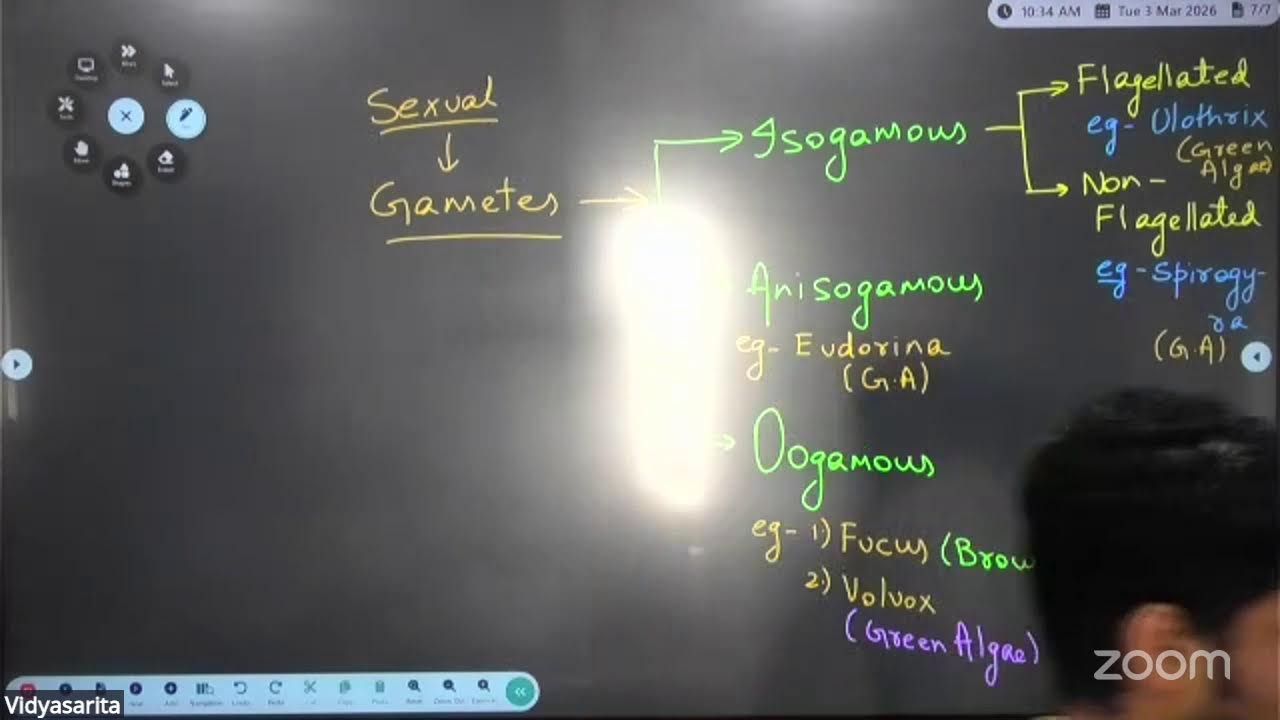 10:34 AM Tue 3 Mar 2026 7/7
Sexual
Gametes
Isogamous
Flagellated
eg- Ulothrix
(Green
Algae)
Non-
Flagellated
eg-Spirogy-
ra
(G.A)
Anisogamous
eg- Eudorina
(G.A)
Oogamous
eg- 1) Fucus (Brow
2) Volvox
(Green Algae)
Select
Eraser
Shapes
Move
Tools
Desktop
Undo
zoom
Vidyasarita